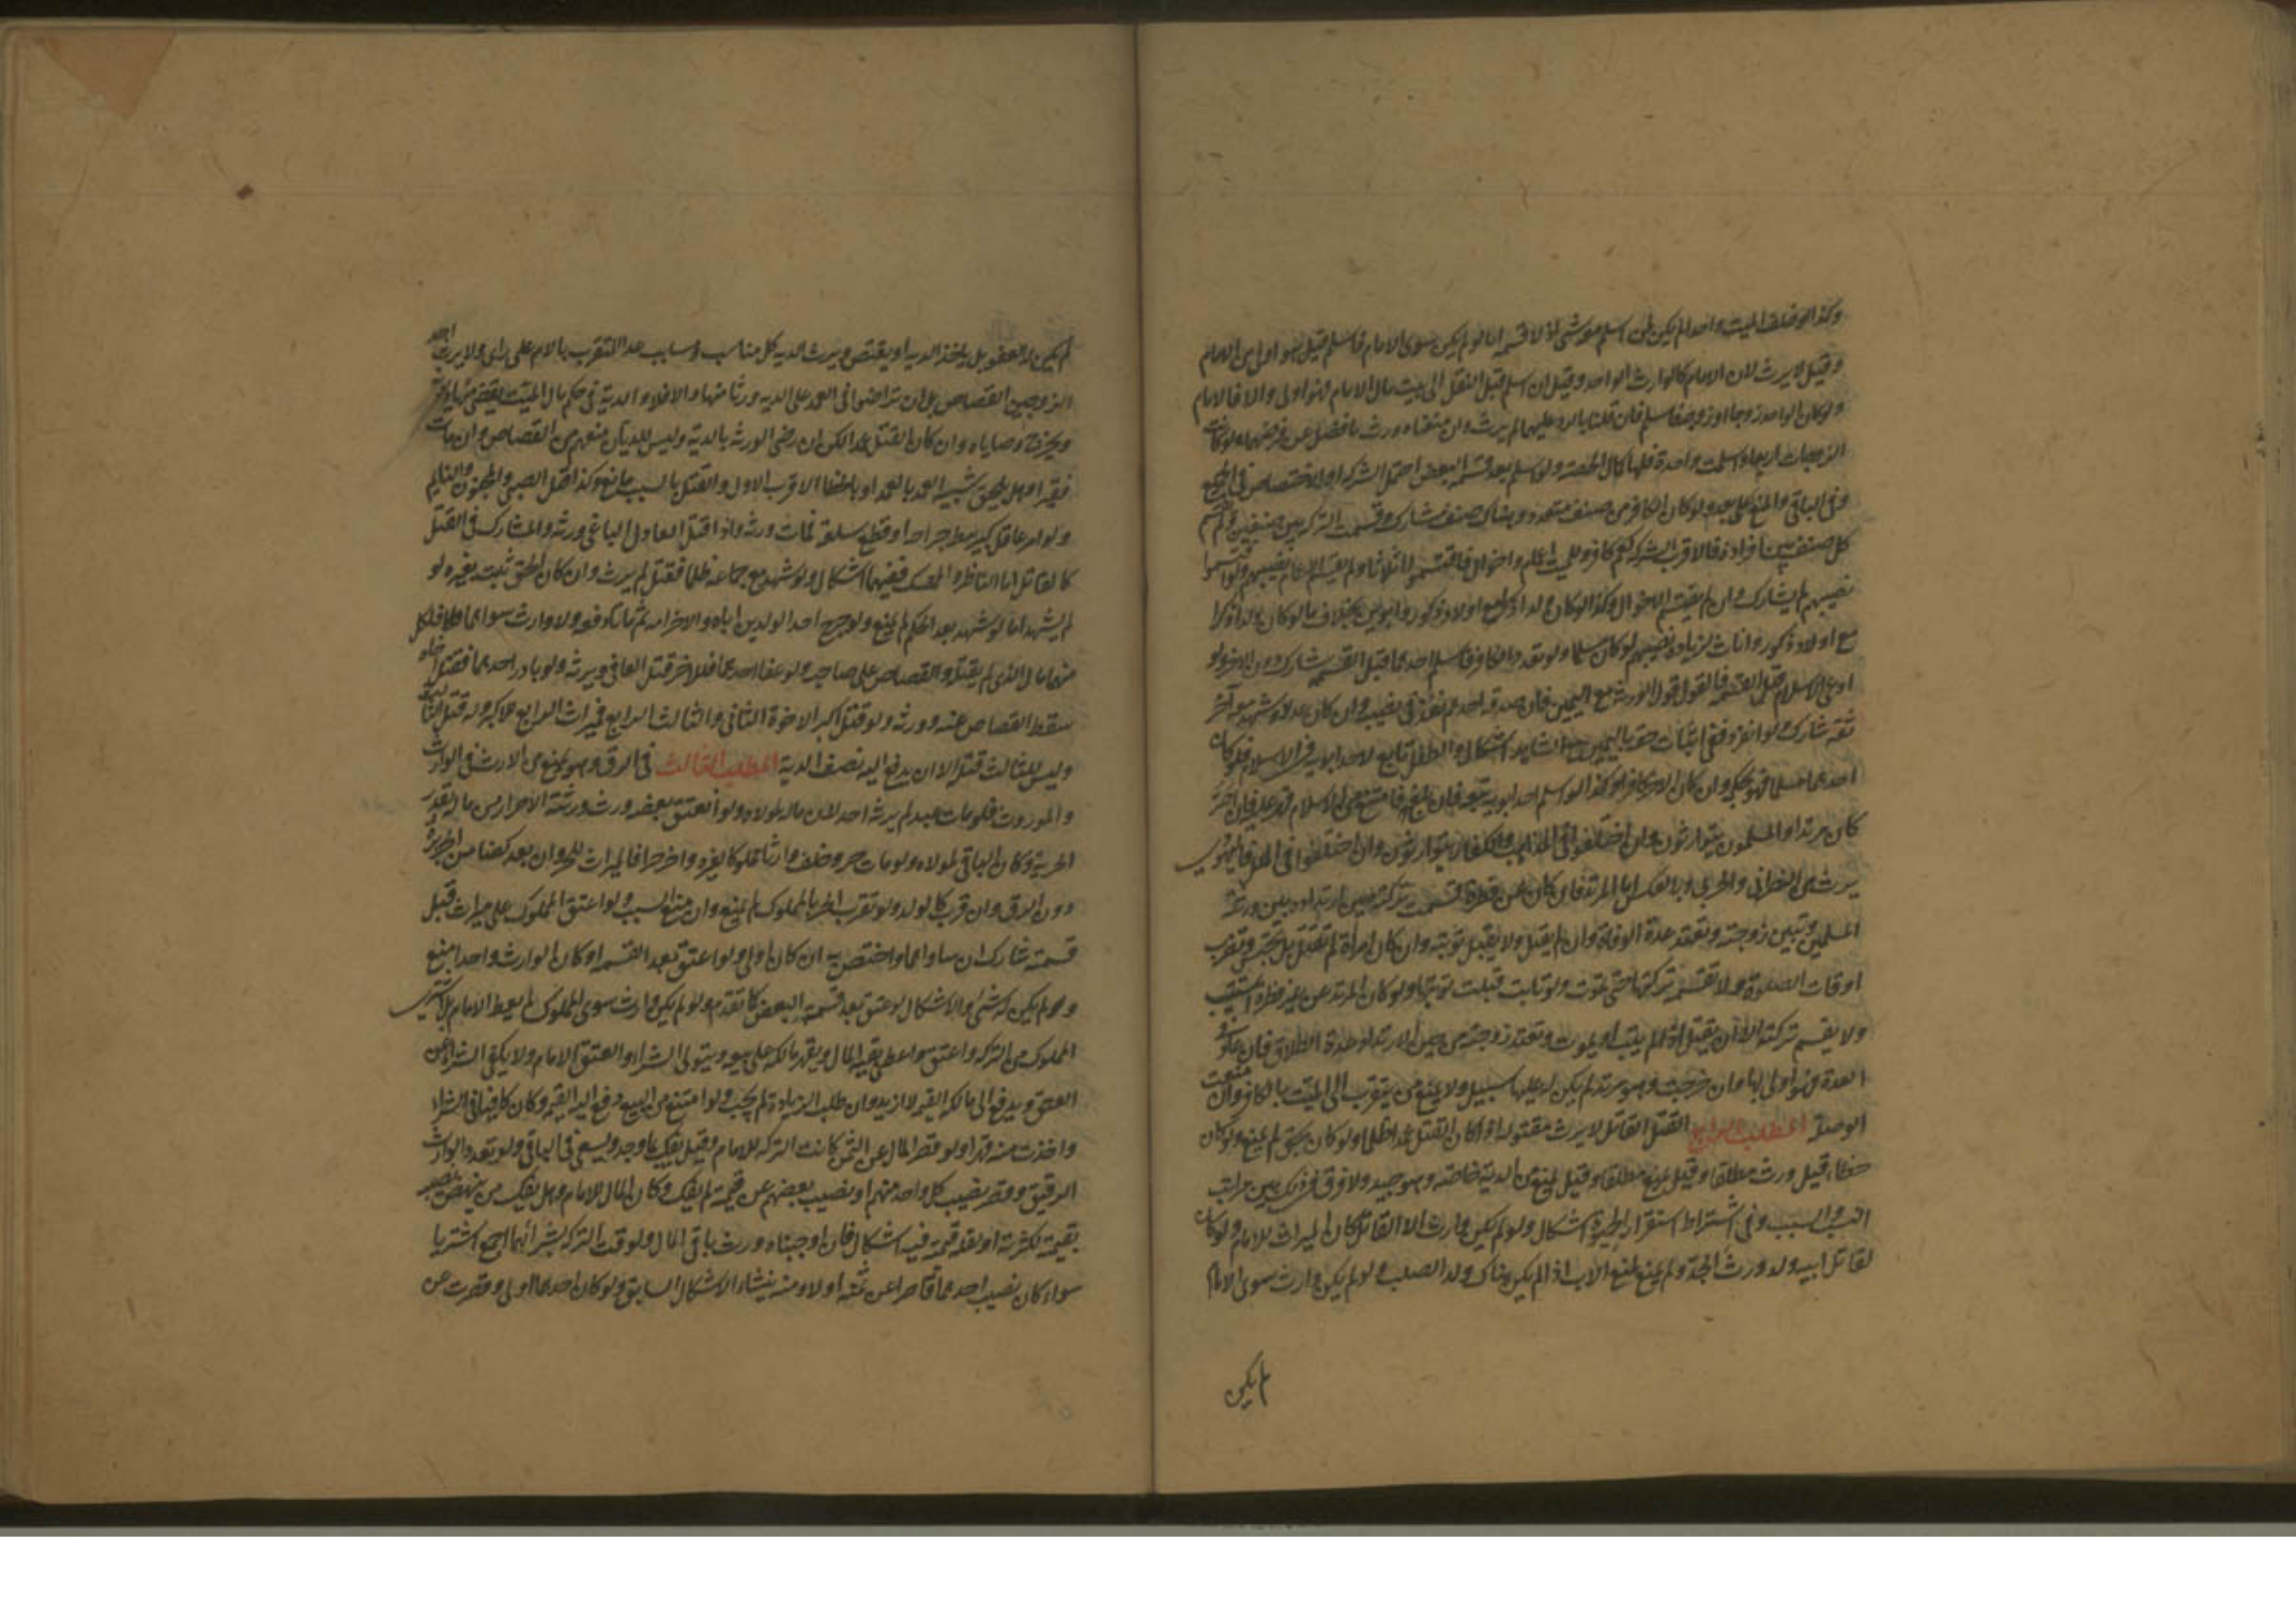 وكذا لو خلف الميت واحدا لم يكن لمن اسلم معه شئ اذ لا قسمة اما لو لم يكن سوى الامام فاسلم قيل هو اولى من الامام
وقيل لا يرث لان الامام كالوارث الواحد وقيل ان اسلم قبل النقل الى بيت مال الامام فهو اولى والا فالامام
ولو كان الواحد زوجا او زوجة فاسلم فان قلنا بالرد عليهما لم يرث وان منعناه ورث ما فضل عن فرضهما ولو كانت
الزوجات اربعا فاسلمت واحدة فلها كمال الحصة ولو اسلم بعد قسمة البعض احتمل الشركة او الاختصاص في الجميع
وفي الباقي والمنع على بعد ولو كان الكافر من صنف متعدد وهناك صنف مشارك وقسمت التركة بين صنفين ولم يقسم
كل صنف بين افراده فالاقرب الشركة كعم كافر وللميت اعمام واخوال فاقتسموا اثلاثا ولم يقسم الاعام نصيبهم ولو اقتسموا
نصيبهم لم يشارك وان لم يقتسم الاخوال وكذا لو كان ولدا ذكرا مع اولاد ذكور وابوين بخلاف ما لو كان ولدا ذكرا
مع اولاد ذكور واناث لزيادة نصيبهم لو كان مسلما ولو تعدد الكافر فاسلم احدهما قبل القسمة شارك دون الاخر ولو
ادعى الاسلام قبل القسمة فالقول قول الورثة مع اليمين فان صدقه احدهم نفذ في نصيبه وان كان عدلا وشهد معه آخر
ثقة شارك ولو انفرد ففي اثبات حقه باليمين مع الشاهد اشكال والطفل تابع لاحد ابويه في الاسلام فلو كان
احدهما مسلما فهو بحكمه وان كان الاخر كافرا وكذا لو اسلم احد ابويه تبعه فان بلغ فامتنع عن الاسلام قهر عليه فان اصر
كان مرتدا والمسلمون يتوارثون وان اختلفوا في المذاهب والكفار يتوارثون وان اختلفوا في الملل فاليهودي
يرث من النصراني والحربي وبالعكس اما المرتد فان كان عن فطرة قسمت تركته حين ارتداده بين ورثته
المسلمين وتبين زوجته وتعتد عدة الوفاة وان لم يقتل ولا يقبل توبته وان كان امراة لم تقتل بل تحبس وتضرب
اوقات الصلوة ولا تقسم تركتها حتى تموت ولو تابت قبلت توبتها ولو كان المرتد عن غير فطرة استتيب
ولا يقسم تركته الا ان يقتل اذ لم يتب او يموت وتعتد زوجته من حين الارتداد عدة الطلاق فان عاد في
العدة فهو اولى بها وان خرجت وهو مرتد لم يكن له عليها سبيل ولا يمنع من يتقرب الى الميت بالكافر وان منعت
الوصلة المطلب الثاني القتل القاتل لا يرث مقتوله اذا كان القتل عمدا ظلما ولو كان بحق لم يمنع ولو كان
خطأ قيل ورث مطلقا وقيل يمنع مطلقا وقيل يمنع من الدية خاصة وهو جيد ولا فرق في ذلك بين مراتب
النسب والسبب وفي اشتراط استقرار الحيوة اشكال ولو لم يكن وارث الا القاتل كان الميراث للامام ولو كان
لقاتل ابيه ولد ورث الجد ولم يمنع بمنع الاب اذا لم يكن هناك ولد الصلب ولو لم يكن وارث سوى الامام
لم يكن
لم يكن له العفو بل ياخذ الدية او يقتص ويرث الدية كل مناسب ومسابب عدا المتقرب بالام على راى ولا يرث احد
الزوجين القصاص بل ان تراضوا في العمد على الدية ورثا منها والا فلا والدية في حكم مال الميت يقضى منها ديونه
ويخرج وصاياه وان كان القتل عمدا لكن ان رضى الورثة بالدية وليس للديان منعهم من القصاص وان مات
فقيرا وهل يلحق شبيه العمد بالعمد او بالخطا الاقرب الاول والقتل بالسبب مانع وكذا قتل الصبي والمجنون والنايم
ولو امر عاقل كبير ببط جراحه او قطع سلعة فمات ورثه واذا قتل العادل الباغي ورثه والمشارك في القتل
كالقاتل اما الناظر والممسك ففيهما اشكال ولو شهد مع جماعة ظلما فقتل لم يرث وان كان الحق ثبت بغيره لو
لم يشهد اما لو شهد بعد الحكم لم يمنع ولو جرح احد الولدين اباه والاخر امه ثم ماتا دفعة ولا وارث سواهما فلكل
منهما مال الذى لم يقتله والقصاص على صاحبه ولو عفا احدهما فللاخر قتل العافي ويرثه ولو بادر احدهما فقتل اخاه
سقط القصاص عنه وورثه ولو قتل اكبر الاخوة الثاني والثالث الرابع فميراث الرابع للاكبر وله قتل الثالث
وليس للثالث قتله الا ان يدفع اليه نصف الدية المطلب الثالث في الرق وهو يمنع من الارث في الوارث
والموروث فلو مات عبد لم يرثه احد لان ماله لمولاه ولو انعتق بعضه ورث ورثته الاحرار من ماله بقدر
الحرية وكان الباقي لمولاه ولو مات حر وخلف وارثا مملوكا لغيره واخر حرا فالميراث للحر وان بعد كضامن الجريرة
دون الرق وان قرب كالولد ولو تقرب الحر بالمملوك لم يمنع وان منع السبب ولو اعتق المملوك على ميراث قبل
قسمته شارك ان ساواهم او اختص به ان كان اولى ولو اعتق بعد القسمة او كان الوارث واحدا منع
ولم يكن له شئ والاشكال لو عتق بعد قسمة البعض كما تقدم ولو لم يكن وارث سوى المملوك لم يعط الامام بل اشترى
المملوك من التركة واعتق واعطى بقية المال ويقهر مالكه على بيعه ويتولى الشراء والعتق الامام ولا يكفي الشراء عن
العتق ويدفع الى مالكه القيمة لا ازيد وان طلب الزيادة لم يجب ولو امتنع من البيع دفع اليه القيمة وكان كافيا في الشراء
واخذت منه قهرا ولو قصر المال عن الثمن كانت التركة للامام وقيل يفك بما وجد ويسعى في الباقي ولو تعدد الوارث
الرقيق وقصر نصيب كل واحد منهم او نصيب بعضهم عن قيمته لم يفك وكان المال للامام وهل يفك من ينهض نصيبه
بقيمته لكثرته او لقلة قيمته فيه اشكال فان اوجبناه ورث باقي المال ولو وفت التركة بشرائهما اجمع اشتريا
سواء كان نصيب احدهما قاصرا عن ثمنه اولا ومنه ينشاء الاشكال السابق ولو كان احدهما اولى وقصرت عن